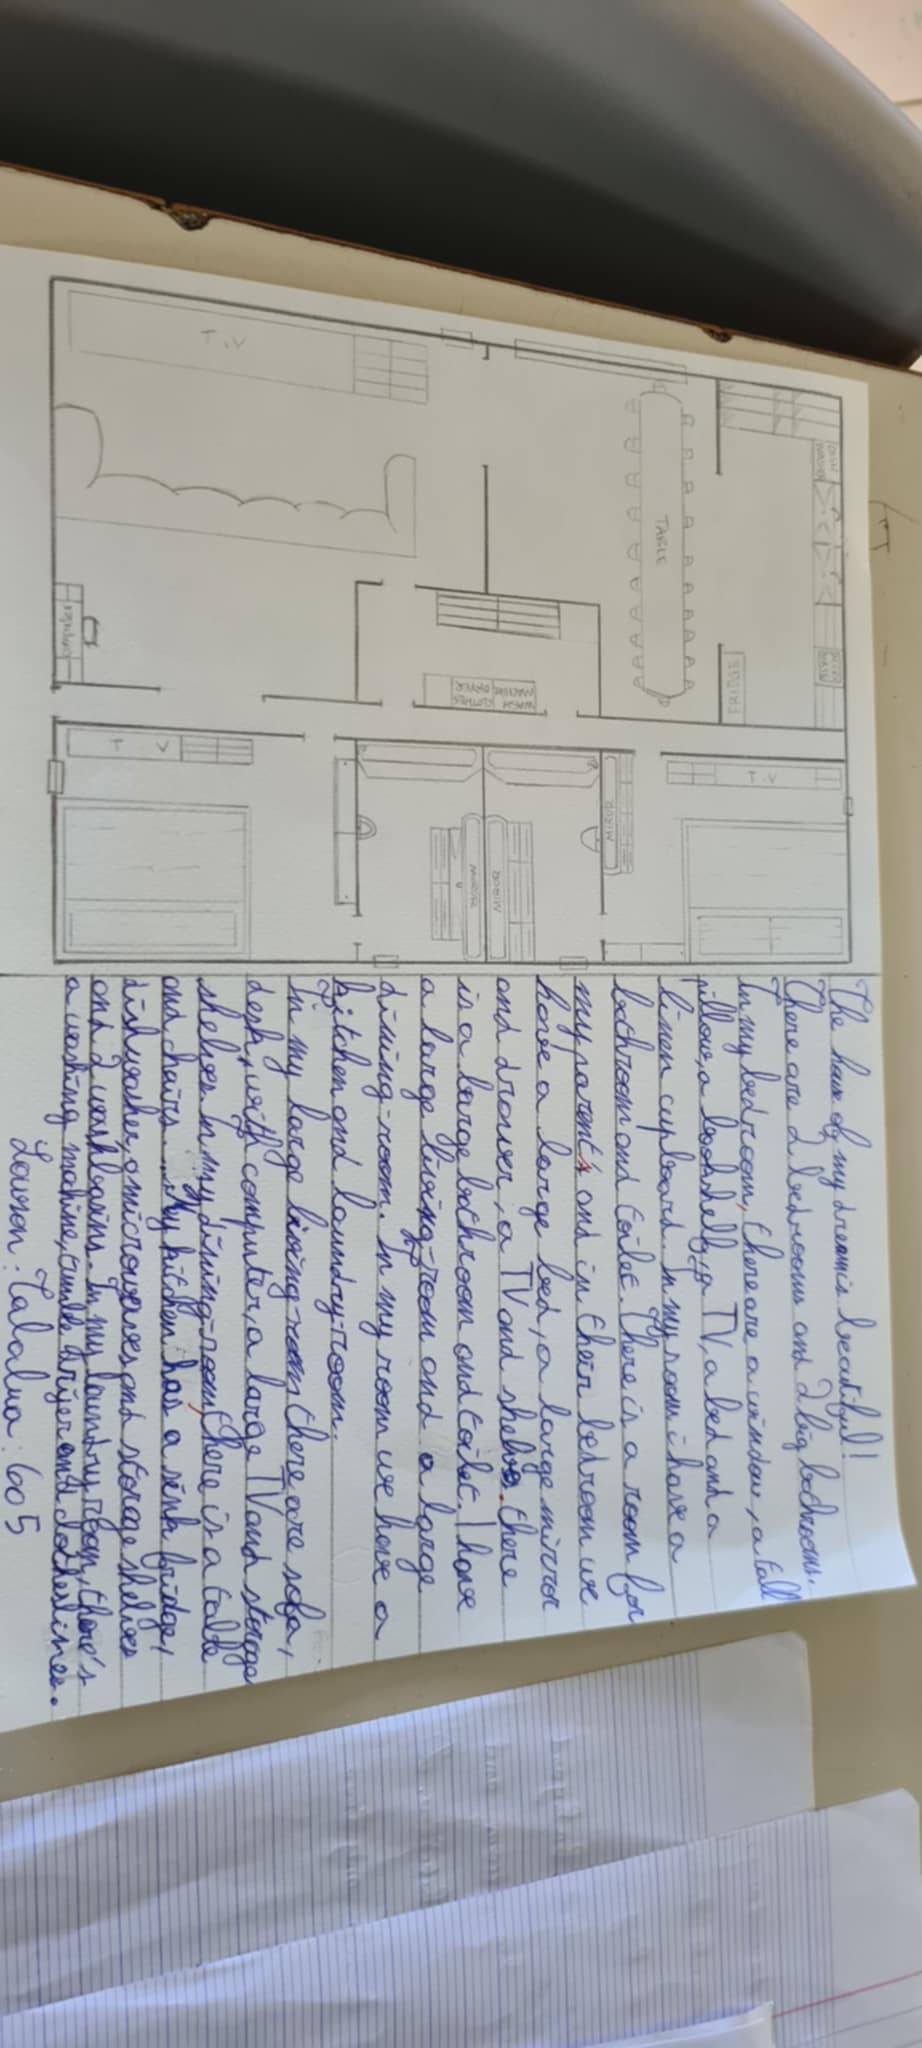 T.V
TABLE
DISH
WASHER
FRIDGE
COMPUTER
WASH
MACHINE
CLOTHES
DRYER
T V
MIROR
MIROR
MIROR
T.V
The house of my dream is beautiful!
There are 2 bedrooms and 2 big bathrooms.
In my bedroom, there are a window, a tall
pillow, a bookshelf, a TV, a bed and a
linen cupboard. In my room i have a
bathroom and toilet. There is a room for
my parent's and in their bedroom we
have a large bed, a large mirror
and drawer, a TV and shelves. there
is a large bathroom and toilet. I have
a large living-room and a large
dining-room. In my room we have a
kitchen and laundry-room.
In my large living-room there are sofa,
desk, with computer, a large TV and storage
shelves. In my dining-room, there is a table
and chairs. My kitchen has a sink fridge,
dishwasher, a microwaves and storage shelves
and 2 wash basins. In my laundry room, there's
a washing machine, tumble dryer and clotheslines.
Louson: Talalua: 605